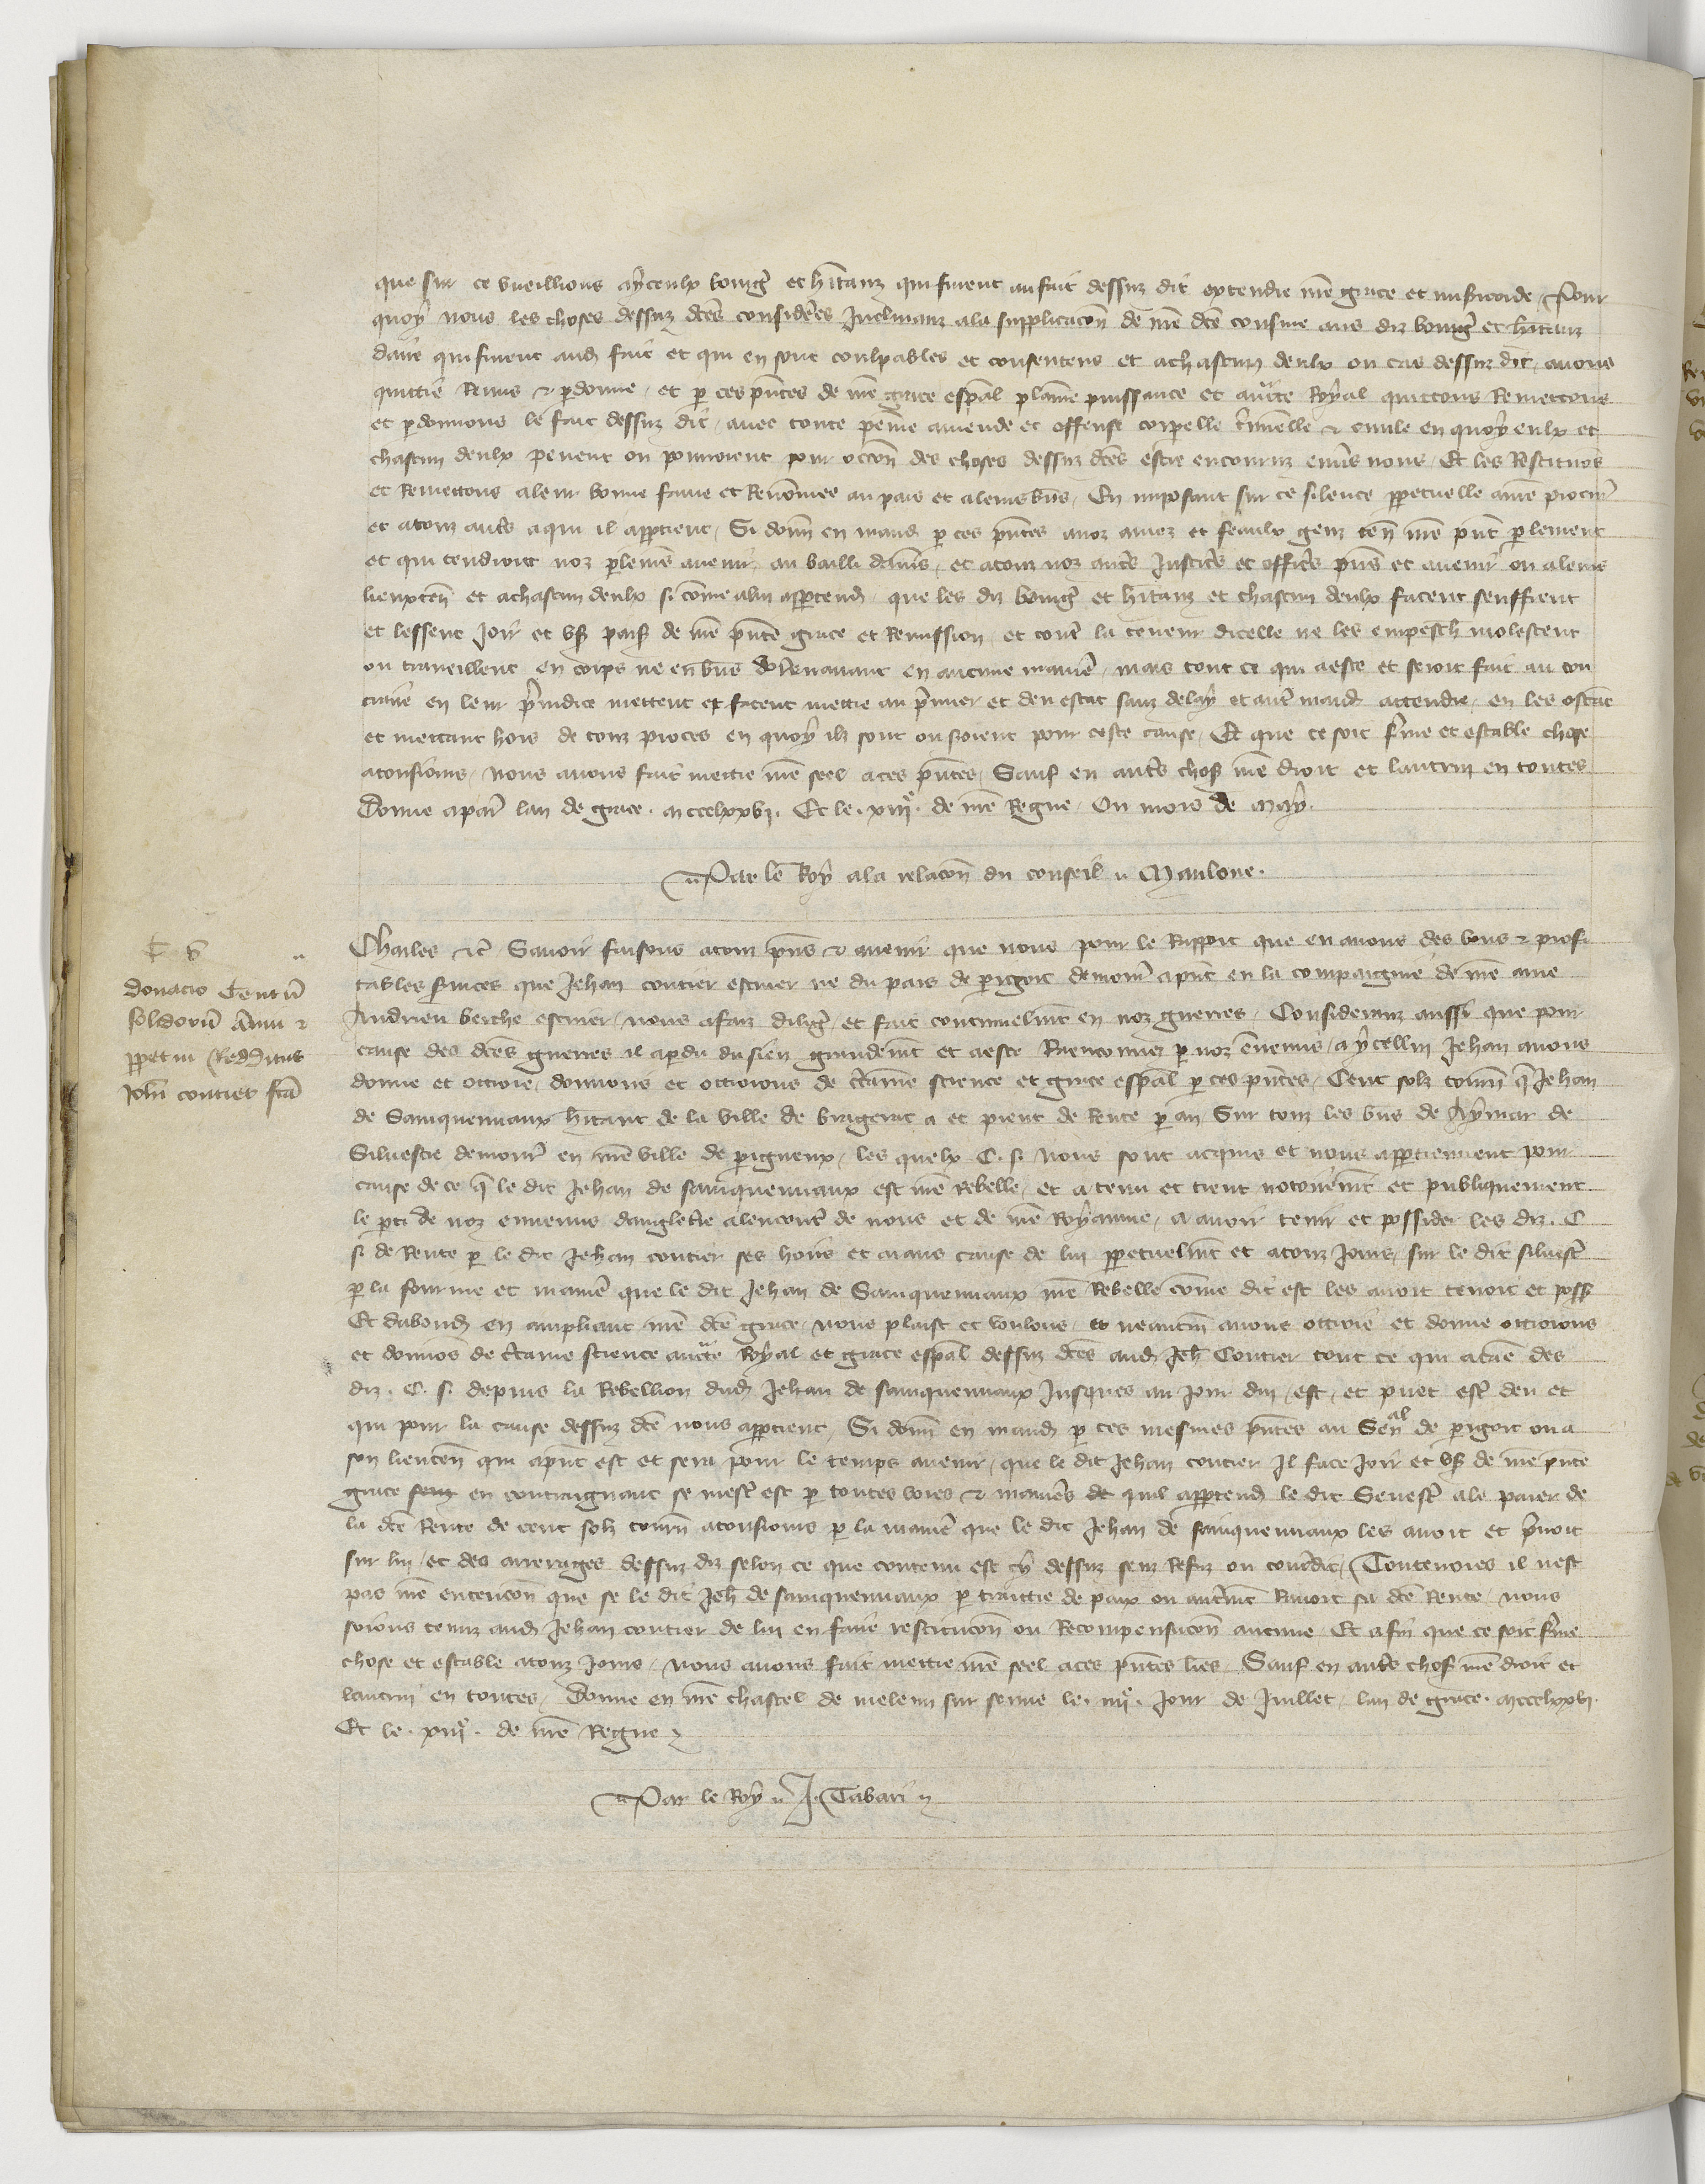 que sur ce vueillions aẏceulx bourg̃ et hĩtanz qui furent au fait dessuz dit extendre nr̃e grace et mĩscorde / Pour
quoẏ nous les choses dessuz dc̃es considerees Inclinanz a la supplicacon̄ de nr̃e dc̃e cousine aus diz bourg̃ et hĩtanz
daire qui furent aud fait et qui en sont coulpables et consentens et a chascun deulx ou cas dessuz dit / auons
quittie Remis & pdonne / et p ces pñtes de nr̃e grace esp̄al plaine puissance et auc̃te Roẏal quittons Remettons
et pdonnons le fait dessuz dit / auec toute peine amende et offense corpelle c̃minelle & ciuile en quoẏ eulx et
chascun deulx peuent ou pourroient pour occon̄ des choses dessuz dc̃es estre encouruz enũs nous / Et les Restituõs
et Remettons a leur bonne fame et Renõmee au pais et a leurs bñs / En imposant sur ce silence ppetuelle a nr̃e procur̃
et a touz aut̃s a qui il apptient / Si donñ en mand p ces pñtes a noz amez et feaulx genz teñ nr̃e pñt plement
et qui tendront noz plemẽs auenir / au bailli damĩs / et a touz noz aut̃s Justic̃s et offic̃s pñs et auenir ou a leurs
lieuxteñ et a chascun deulx si cõme a lui apptend / que les diz bourg̃ et hĩtanz et chascun deulx facent seuffrent
et lessent Joir et vs̃ paiss̃ de nr̃e pñte grace et Remission / et cont̃ la teneur dicelle ne les empesch molestent
ou traueillent en corps ne en biẽs dorenauant en aucune manie / mais tout ce qui a este et seroit fait au con
traire en leur p̃iudice mettent et facent mettre au p̃mier et deu estat sanz delaẏ et aut̃ mand attendre / en les ostãt
et mettant hors de touz proces en quoẏ ilz sont ou soient pour ceste cause / Et que ce soit f̃me et estable chose
a tousiours / nous auons fait mettre nr̃e seel a ces pñtes / Sauf en aut̃s chos̃ nr̃e droit et lautrui en toutes
Donne a par̃ lan de grace . mccclxxvj . Et le . xiije . de nr̃e Regne / Ou mois de maẏ .
Par le Roẏ a la relacon̄ du conseil Maulone .
donacio Centũ
soldorũ ãnui &
ppetui Redditus
Joh̃i coutier fc̃a
Charles &c̃ Sauoir faisons a touz pñs & auenir que nous pour le Rapport que en auons des bons & profi
tables s̃uices que Jehan coutier escuier ne du pais de pigort demour̃ a pñt en la compaignie de nr̃e ame
Andrieu berthe escuier / nous a faiz dilig̃ et fait continuelm̃t en noz guerres / Consideranz aussi que pour
cause des dc̃es guerres il a pdu du sien grandem̃t et a este Raenconnez p noz ẽnemis / a ẏcellui Jehan auons
donne et ottroie / donnons et ottroions de c̃taine science et grace esp̄al p ces pñtes / Cent solz tourñ q̃ Jehan
de Sauquenuaux hĩtant de la ville de bragerac a et prent de Rente p an Sur touz les biẽs de Aẏmar de
Siluestre demour̃ en nr̃e ville de pigueux / les quelx C . s . nous sont acquis et nous apptiennent pour
cause de ce q̃ le dit Jehan de sauquenuaux est nr̃e Rebelle / et a tenu et tient notoirem̃t et publiquement
le pti de noz ennemis dangleterre a lencont̃ de nous et de nr̃e Roẏaume / a auoir tenir et possider les diz . C
s . de Rente p le dit Jehan coutier ses hoirs et aians cause de lui ppetuelm̃t et a touz Jours / sur le dit siluest̃
p la fourme et manie que le dit Jehan de Sauquenuaux nr̃e Rebelle cõme dit est les auoit tenoit et poss̃
Et dabond en ampliant nr̃e dc̃e grace / nous plaist et voulons / et neantm̃ auons ottroie et donne ottroions
et donnõs de c̃taine science auc̃te Roẏal et grace esp̄al dessuz dc̃es aud Jeh̃ Coutier tout ce qui a cause des
diz . C . s . depuis la Rebellion dud Jehan de sauquenuaux Jusques au Jour dui / est / et puet est̃ deu et
qui pour la cause dessuz dc̃e nous apptient / Si donñ en mand p ces mesmes pñtes au Señal de pigort ou a
son lieuteñ qui a pñt est et sera pour le temps auenir / que le dit Jehan coutier Il face Joir et vs̃ de nr̃e pñte
grace en contraignant se mest̃ est p toutes voies & manies quil apptend le dit Seuest̃ a le paier de
la dc̃e Rente de cent solz tourñ a tousiours p la manie que le dit Jehan de sauquenuaux les auoit et p̃noit
sur lui / et des arrerages dessuz diz selon ce que contenu est cẏ dessuz senz Refuz ou contredit / Toutenoies il nest
pas nr̃e entencon̄ que se le dit Jeh̃ de sauquenuaux p traittie de paix ou autrem̃t Rauoit sa dc̃e Rente / nous
soions tenuz aud Jehan coutier de lui en faire restitucon̄ ou Recompensacon̄ aucune Et afin que ce soit f̃me
chose et estable a touz Jours / nous auons fait mettre nr̃e seel a ces pñtes lr̃es Sauf en aut̃s chos̃ nr̃e droit et
lautrui en toutes / Donne en nr̃e chastel de meleun sur seinne le . iiije . Jour de Juillet / lan de grace . mccclxxvi .
Et le . xiije . de nr̃e Regne
Par le Roẏ J . Tabari